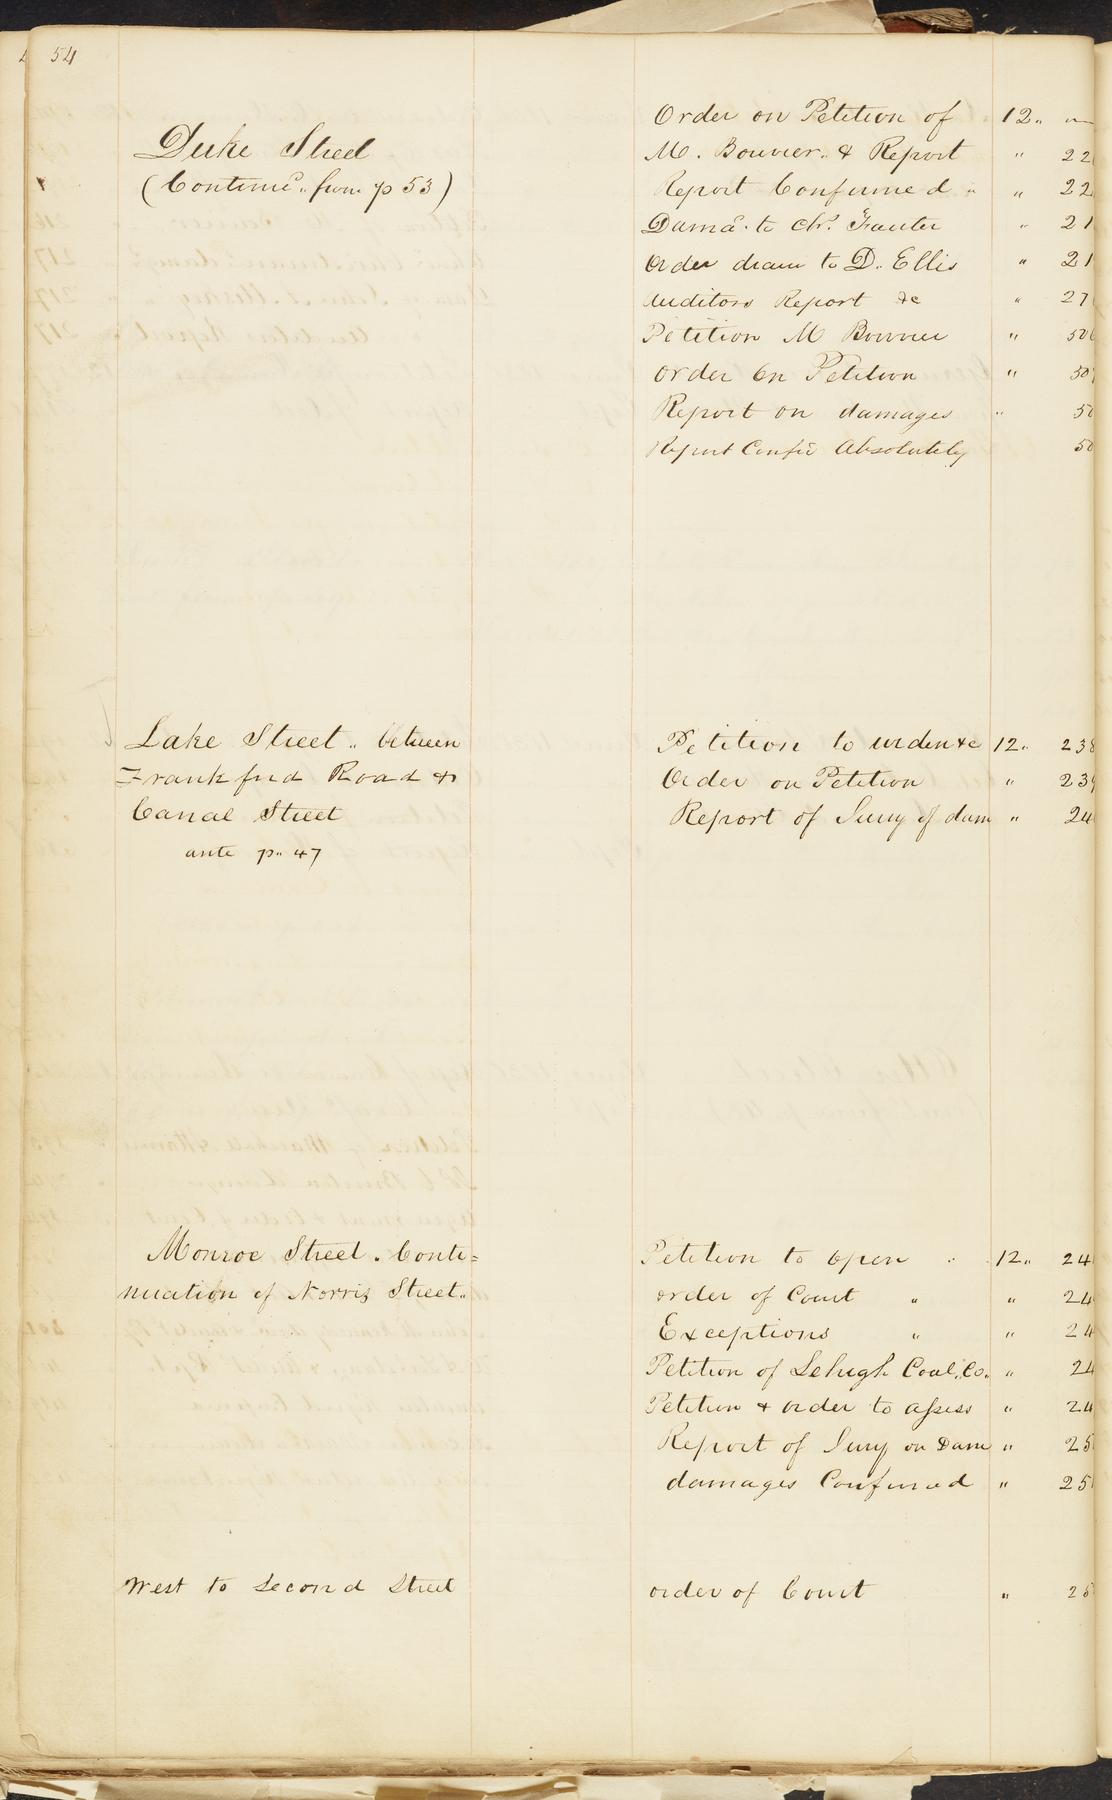 54
Duke Street
(Continued.. from p 53)
Order on Petition of 12..
M. Bouvier. & Report " 22
Report Confirmed " " 22
Dama. to Chr. " 21
Order drawn to D. Ellis " 21
Auditors Report &c " 27
Petition M Bouvier " 50
Order On Petition " 50
Report on damages " 50
Report Confd Absolutely 50
Lake Street .. between
Frankford Road &
Canal Street
ante p.. 47
Petition to widen &c 12.. 238
Order on Petition " 239
Report of Jury of dam " 24
Monroe Street. Conti=
nuation of Norris Street..
Petition to Open 12.. 24
order of Court " " 24
Exceptions " " 24
Petition of Lehigh Coal, Co. " 24
Petition & order to assess " 24
Report of Jury on Dam " 25
damages Confirmed " 25
West to Second Street
order of Court " 25